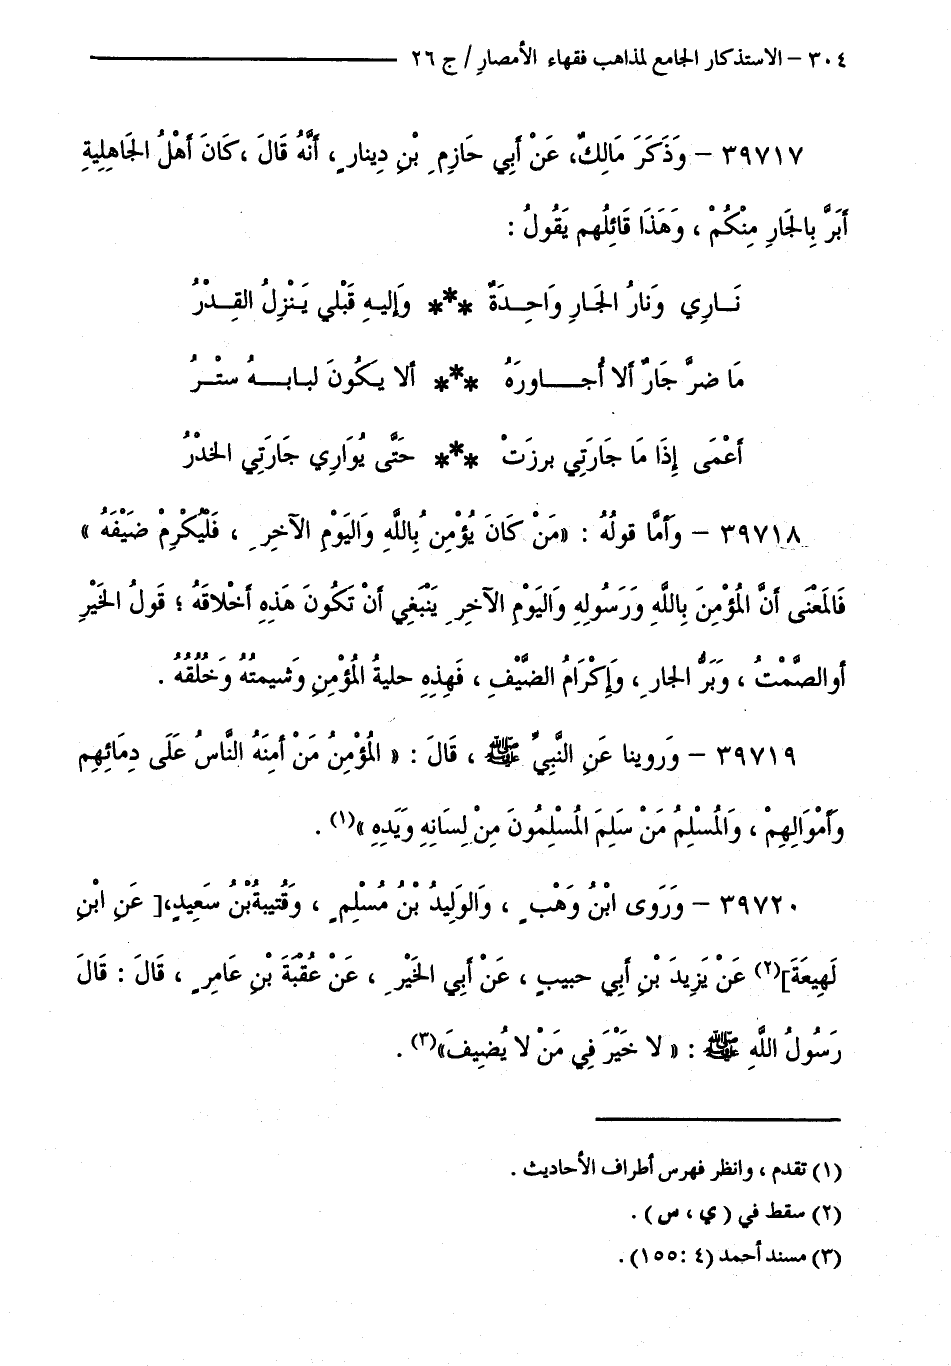 ٣٠٤ – الاستذكار الجامع لمذاهب فقهاء الأمصار / ج ٢٦
٣٩٧١٧ – وَذَكَرَ مَالِكٌ، عَنْ أَبِي حَازِمِ بْنِ دِينارٍ، أَنَّهُ قَالَ، كَانَ أَهْلُ الجَاهِلِيةِ
أَبَرَّ بِالجَارِ مِنْكُمْ ، وَهَذَا قَائِلُهم يَقُولُ :
نَــارِي وَنارُ الجَـارِ وَاحِـدَةٌ *** وَإليـهِ قَبْلي يَـنْزِلُ القِـدْرُ
مَا ضرَّ جَارٌ ألا أُجَــــاورَهُ *** ألا يـكُونَ لبـابــــهُ ستْـرُ
أعْمَى إِذَا مَا جَارَتِي برزَتْ *** حَتَّى يُوَارِي جَارَتِي الخدْرُ
٣٩٧١٨ – وَأَمَّا قولُهُ : «مَنْ كَانَ يُؤْمِنُ بِاللَّهِ وَاليَوْمِ الآخِرِ ، فَلْيُكْرِمْ ضيْفَهُ»
فَالمَعْنَى أَنَّ المُؤْمِنَ بِاللَّهِ وَرَسُولِهِ وَاليَوْمِ الآخِرِ يَنْبَغِي أَنْ تَكُونَ هَذِهِ أَخْلاقَهُ ؛ قَولُ الخَيْرِ
أو الصَّمْتُ ، وَبَرُّ الجارِ ، وَإِكْرَامُ الضَّيْفِ ، فَهذِهِ حليةُ المُؤْمِنِ وَشيمتُهُ وَخُلُقُهُ .
٣٩٧١٩ – وَروينا عَنِ النَّبِيِّ ﷺ ، قَالَ : « المُؤْمِنُ مَنْ أَمِنَهُ النَّاسُ عَلَى دِمَائِهِم
وَأَمْوَالِهِمْ ، وَالمُسْلِمُ مَنْ سَلِمَ المُسْلِمُونَ مِنْ لِسَانِهِ وَيَدِهِ»(١) .
٣٩٧٢٠ – وَرَوَى ابْنُ وَهْبٍ ، وَالوَلِيدُ بْنُ مُسْلِمٍ ، وَقُتيبةُ بْنُ سَعِيدٍ، [ عَنِ ابْنِ
لَهِيعَةَ](٢) عَنْ يَزِيدَ بْنِ أَبِي حبيبٍ ، عَنْ أَبِي الخَيْرِ ، عَنْ عُقْبَةَ بْنِ عَامرٍ ، قَالَ : قَالَ
رَسُولُ اللَّهِ ﷺ : « لا خَيْرَ فِي مَنْ لا يُضِيفَ»(٣) .
(١) تقدم ، وانظر فهرس أطراف الأحاديث .
(٢) سقط في ( ي ، س ) .
(٣) مسند أحمد (٤ : ١٥٥) .